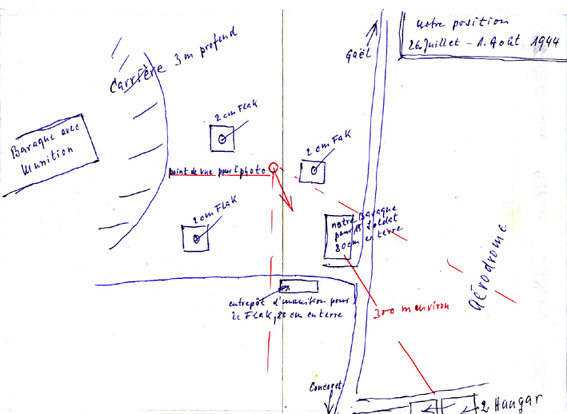 notre position
26. Juillet - 1. Août 1944
Gaël
Carrière 3 m profend
2 cm Flak
2 cm Fak
Baraque avec
Munition
point de vue pour l'photo
2 cm Flak
notre Baraque
pour 18 Soldat
80 cm en terre
Aérodrome
entrepôt d'munition pour
2c Flak, 80 cm en terre
300 m environ
Concoret
2. Hangar